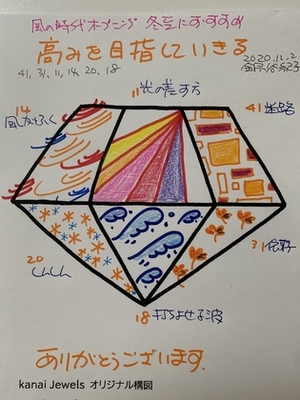 風の時代オープニング 冬至におすすめ
高みを目指していきる
41, 31, 11, 14, 20, 18
2020.12.2
11 光の差す方
14
風がふく
41 迷路
20
しんしん
31
18 打ちよせる波
ありがとうございます。
kanai Jewels オリジナル構図